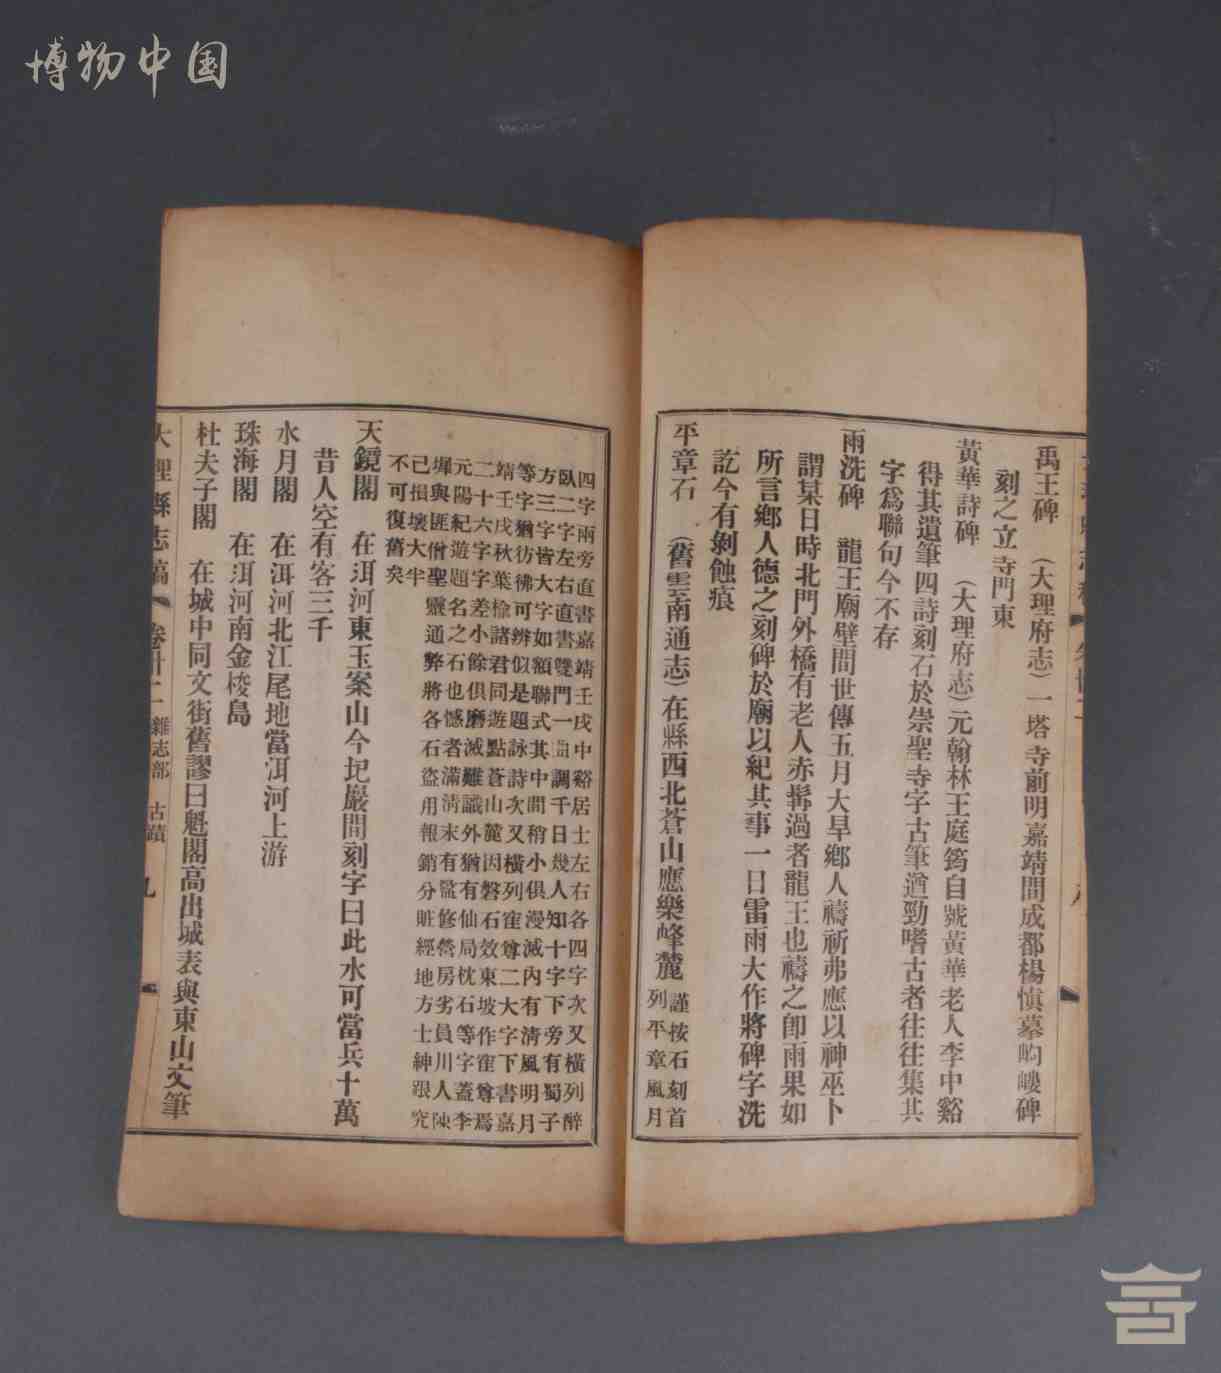 博物中国
禹王碑 （大理府志）一塔寺前明嘉靖間成都楊愼摹岣嶁碑
刻之立寺門東
黃華詩碑 （大理府志）元翰林王庭筠自號黃華老人李中谿
得其遺筆四詩刻石於崇聖寺字古筆遒勁嗜古者往往集其
字爲聯句今不存
雨洗碑 龍王廟壁間世傳五月大旱鄉人禱祈弗應以神巫卜
謂某日時北門外橋有老人赤髯過者龍王也禱之卽雨果如
所言鄉人德之刻碑於廟以紀其事一日雷雨大作將碑字洗
訖今有剝蝕痕
平章石 （舊雲南通志）在縣西北蒼山應樂峰麓
謹按石刻首
列平章風月
四字兩旁直書嘉靖壬戌中谿居士左右各四字次又橫列醉
臥二字左右直書雙門一調千日幾人知十字下旁有蜀子
方三字皆大字如額聯式其中間稍小俱漫滅內有淸風明月
等字猶彷彿可辨似是題詠詩次又橫列窪尊二大字下書嘉
靖壬戌秋葉楡諸君同遊點蒼山麓因磐石效東坡作窪尊焉
二十六字字差小餘俱磨滅難識外猶有仙局枕石等字蓋李
元陽紀遊題名之石也憾者滿淸末有監修營房劣員川人陳
墀與匪僧聖靈通弊將各石盜用報銷分賍經地方士紳跟究
己損壞大半
不可復舊矣
天鏡閣 在洱河東玉案山今圯巖間刻字曰此水可當兵十萬
昔人空有客三千
水月閣 在洱河北江尾地當洱河上游
珠海閣 在洱河南金梭島
杜夫子閣 在城中同文街舊謬曰魁閣高出城表與東山文筆
大理縣志稿 卷廿二 雜志部 古蹟 九